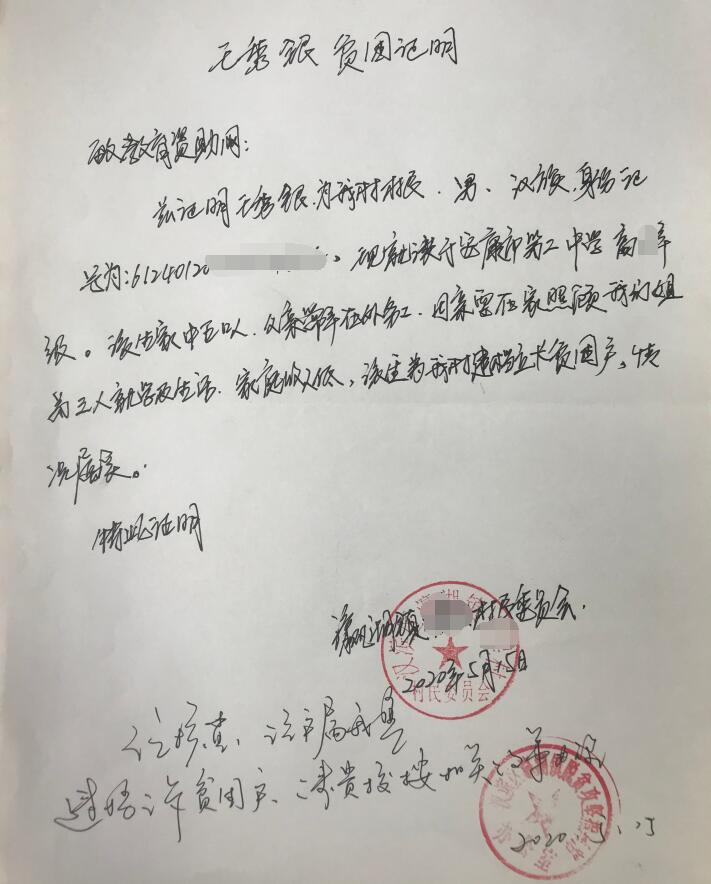 王秀银贫困证明
教育资助网:
兹证明王秀银,为我村村民,男、汉族,身份证
号为:61240120 。现就读于安康市第二中学高 年
级。该生家中五口人,父亲常年在外务工,母亲留在家照顾我们姐
弟三人就学及生活,家庭收入低,该生为我村建档立卡贫困户,情
况属实。
特此证明
瀛湖镇 村民委员会
2020年5月15日
村民委员会
经核查,该户属我县
建档立卡贫困户,请贵校按相关
2020.5.15